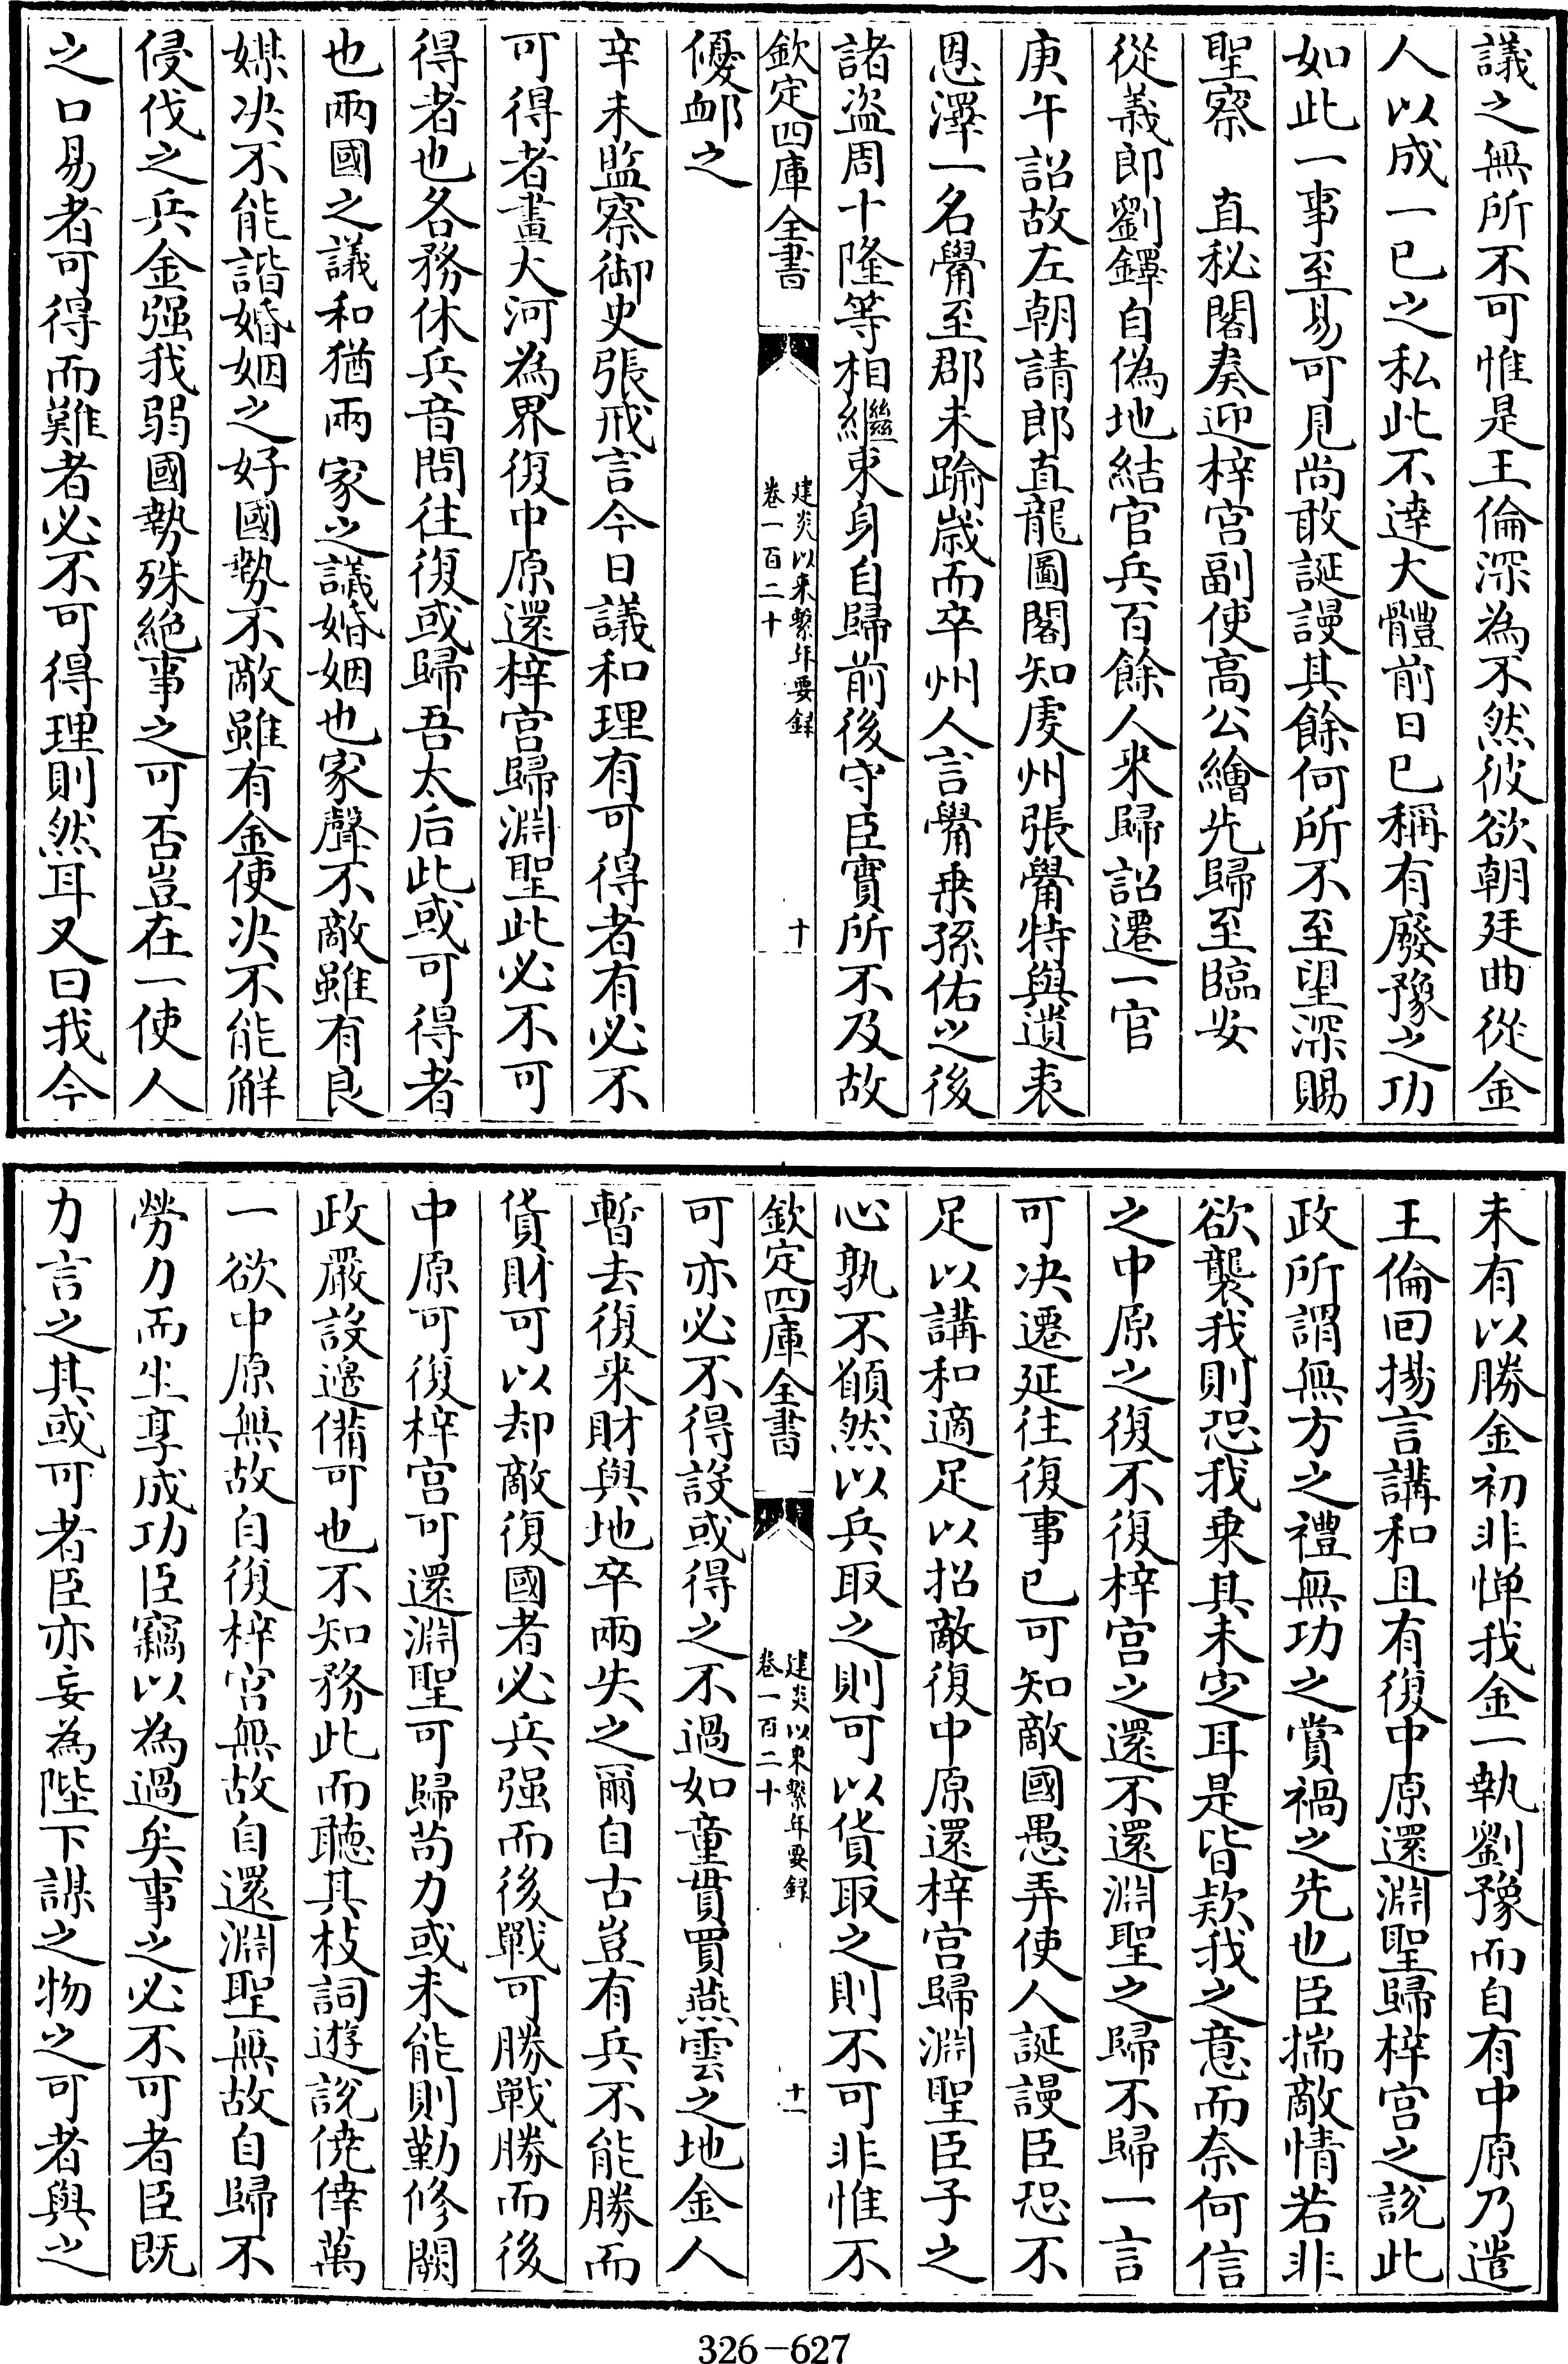 議之無所不可惟是王倫深為不然彼欲朝廷曲從金
人以成一已之私此不達大體前日已稱有廢豫之功
如此一事至易可見尚敢誕謾其餘何所不至望深賜
聖察　直秘閣奏迎梓宮副使高公繪先歸至臨安
從義郎劉鐸自偽地結官兵百餘人來歸詔遷一官
庚午詔故左朝請郎直龍圖閣知虔州張觷特與遺表
恩澤一名觷至郡未踰歲而卒州人言觷乗孫佑之後
諸盜周十隆等相繼束身自歸前後守臣實所不及故
欽定四庫全書
建炎以來繫年要録
卷一百二十
十
優䘏之
辛未監察御史張戒言今日議和理有可得者有必不
可得者畫大河為界復中原還梓宮歸淵聖此必不可
得者也各務休兵音問往復或歸吾太后此或可得者
也兩國之議和猶兩家之議婚姻也家聲不敵雖有良
媒决不能諧婚姻之好國勢不敵雖有金使决不能解
侵伐之兵金强我弱國勢殊絶事之可否豈在一使人
之口易者可得而難者必不可得理則然耳又曰我今
未有以勝金初非憚我金一執劉豫而自有中原乃遣
王倫回揚言講和且有復中原還淵聖歸梓宮之說此
政所謂無方之禮無功之賞禍之先也臣揣敵情若非
欲襲我則恐我乗其未定耳是皆欵我之意而奈何信
之中原之復不復梓宮之還不還淵聖之歸不歸一言
可决遷延往復事已可知敵國愚弄使人誕謾臣恐不
足以講和適足以招敵復中原還梓宮歸淵聖臣子之
心孰不願然以兵取之則可以貨取之則不可非惟不
欽定四庫全書
建炎以來繫年要録
卷一百二十
十一
可亦必不得設或得之不過如童貫買燕雲之地金人
暫去復来財與地卒兩失之爾自古豈有兵不能勝而
貨財可以却敵復國者必兵强而後戰可勝戰勝而後
中原可復梓宮可還淵聖可歸茍力或未能則勤修闕
政嚴設邊備可也不知務此而聽其枝詞遊說僥倖萬
一欲中原無故自復梓宮無故自還淵聖無故自歸不
勞力而坐享成功臣竊以為過矣事之必不可者臣既
力言之其或可者臣亦妄為陛下謀之物之可者與之
326－627